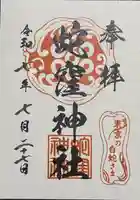 奉拝
蛇窪神社
令和七年
七月二十七日
東京の白蛇さま